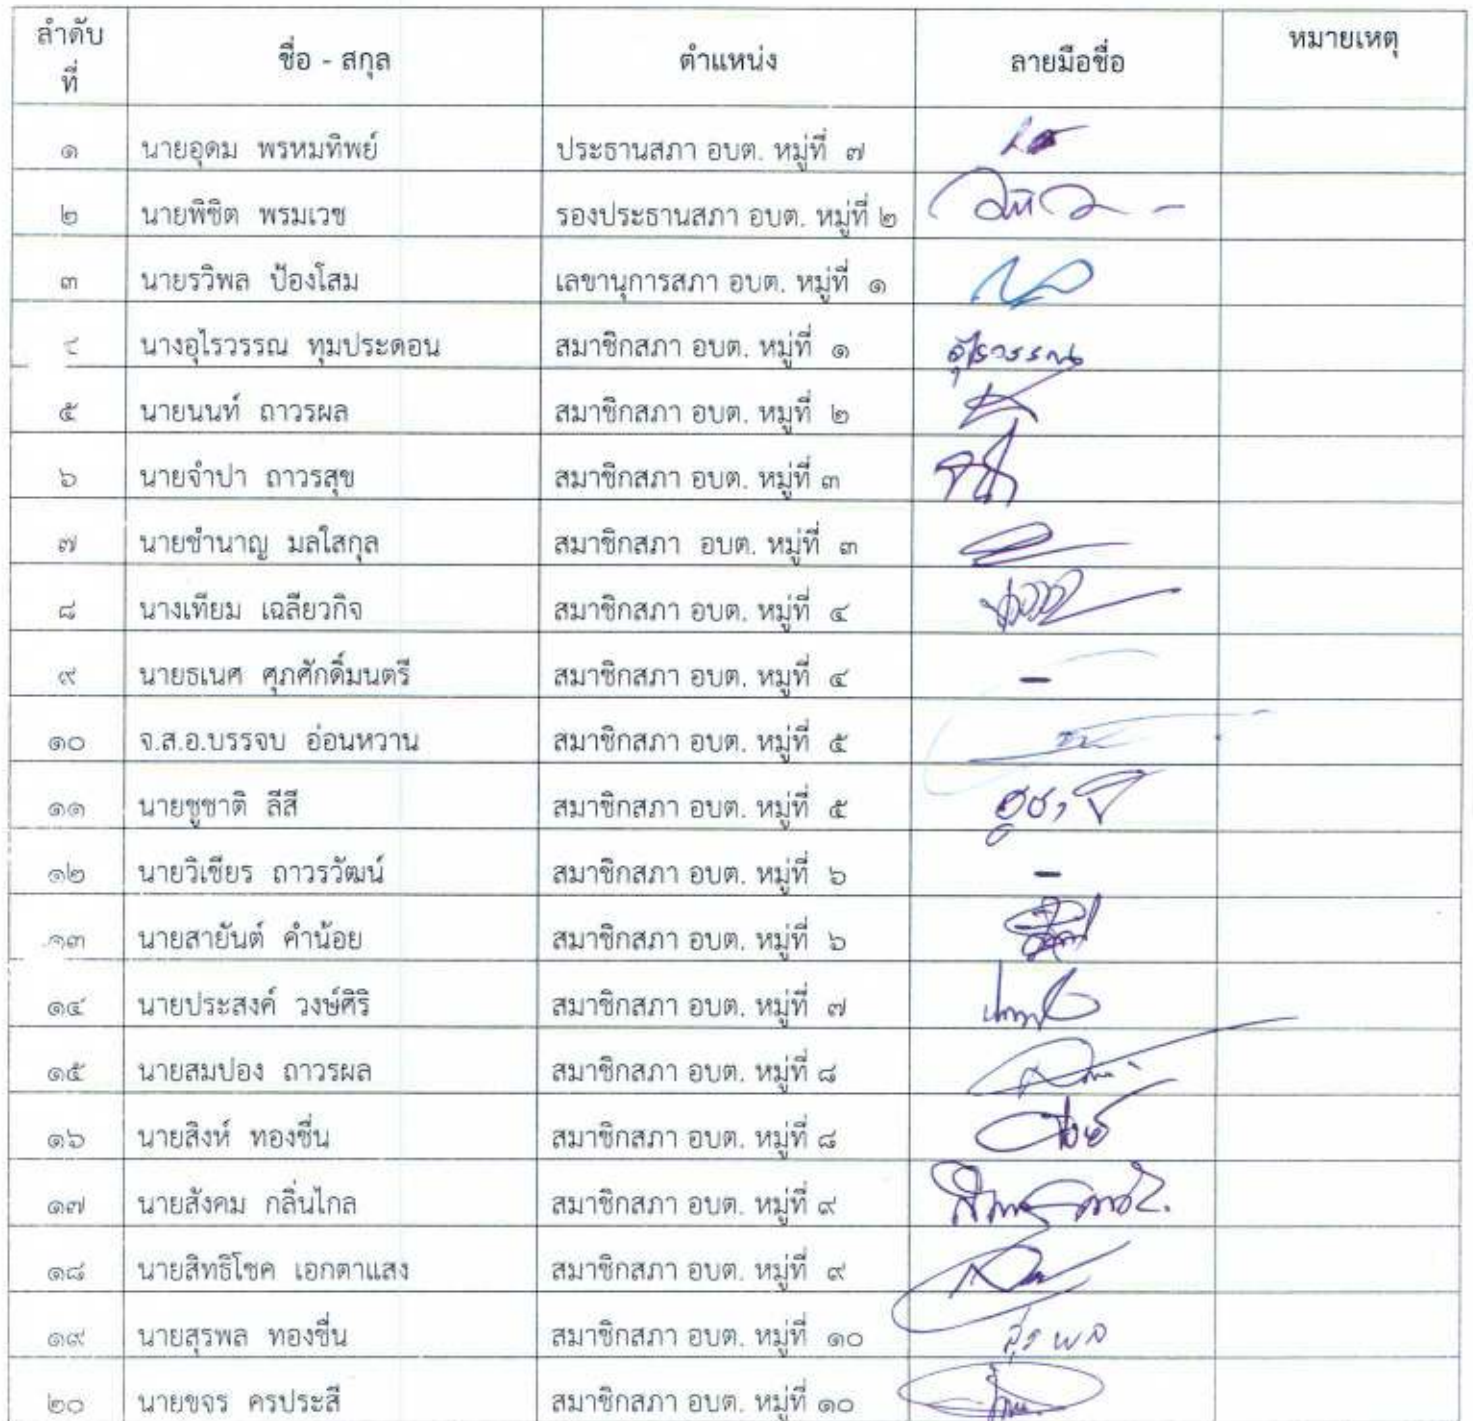 ลำดับที่ ชื่อ - สกุล ตำแหน่ง ลายมือชื่อ หมายเหตุ
๑ นายอุดม พรหมทิพย์ ประธานสภา อบต. หมู่ที่ ๗
๒ นายพิชิต พรมเวช รองประธานสภา อบต. หมู่ที่ ๒
๓ นายรวิพล ป้องโสม เลขานุการสภา อบต. หมู่ที่ ๑
๔ นางอุไรวรรณ ทุมประดอน สมาชิกสภา อบต. หมู่ที่ ๑ อุไรวรรณ
๕ นายนนท์ ถาวรผล สมาชิกสภา อบต. หมู่ที่ ๒
๖ นายจำปา ถาวรสุข สมาชิกสภา อบต. หมู่ที่ ๓
๗ นายชำนาญ มลใสกุล สมาชิกสภา อบต. หมู่ที่ ๓
๘ นางเทียม เฉลียวกิจ สมาชิกสภา อบต. หมู่ที่ ๔
๙ นายธเนศ ศุภศักดิ์มนตรี สมาชิกสภา อบต. หมู่ที่ ๔ -
๑๐ จ.ส.อ.บรรจบ อ่อนหวาน สมาชิกสภา อบต. หมู่ที่ ๕
๑๑ นายชูชาติ ลีสี สมาชิกสภา อบต. หมู่ที่ ๕
๑๒ นายวิเชียร ถาวรวัฒน์ สมาชิกสภา อบต. หมู่ที่ ๖ -
๑๓ นายสายันต์ คำน้อย สมาชิกสภา อบต. หมู่ที่ ๖
๑๔ นายประสงค์ วงษ์ศิริ สมาชิกสภา อบต. หมู่ที่ ๗
๑๕ นายสมปอง ถาวรผล สมาชิกสภา อบต. หมู่ที่ ๘
๑๖ นายสิงห์ ทองชื่น สมาชิกสภา อบต. หมู่ที่ ๘
๑๗ นายสังคม กลิ่นไกล สมาชิกสภา อบต. หมู่ที่ ๙
๑๘ นายสิทธิโชค เอกตาแสง สมาชิกสภา อบต. หมู่ที่ ๙
๑๙ นายสุรพล ทองชื่น สมาชิกสภา อบต. หมู่ที่ ๑๐ สุรพล
๒๐ นายขจร ครประสี สมาชิกสภา อบต. หมู่ที่ ๑๐